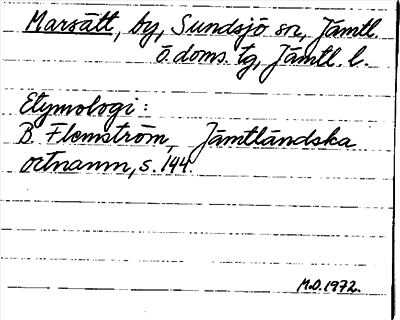 Marsätt, by, Sundsjö sn, Jämtl.
ö. doms. tg, Jämtl. l.
Etymologi:
B. Flemström, Jämtländska
ortnamn, s. 144.
M.D. 1972.